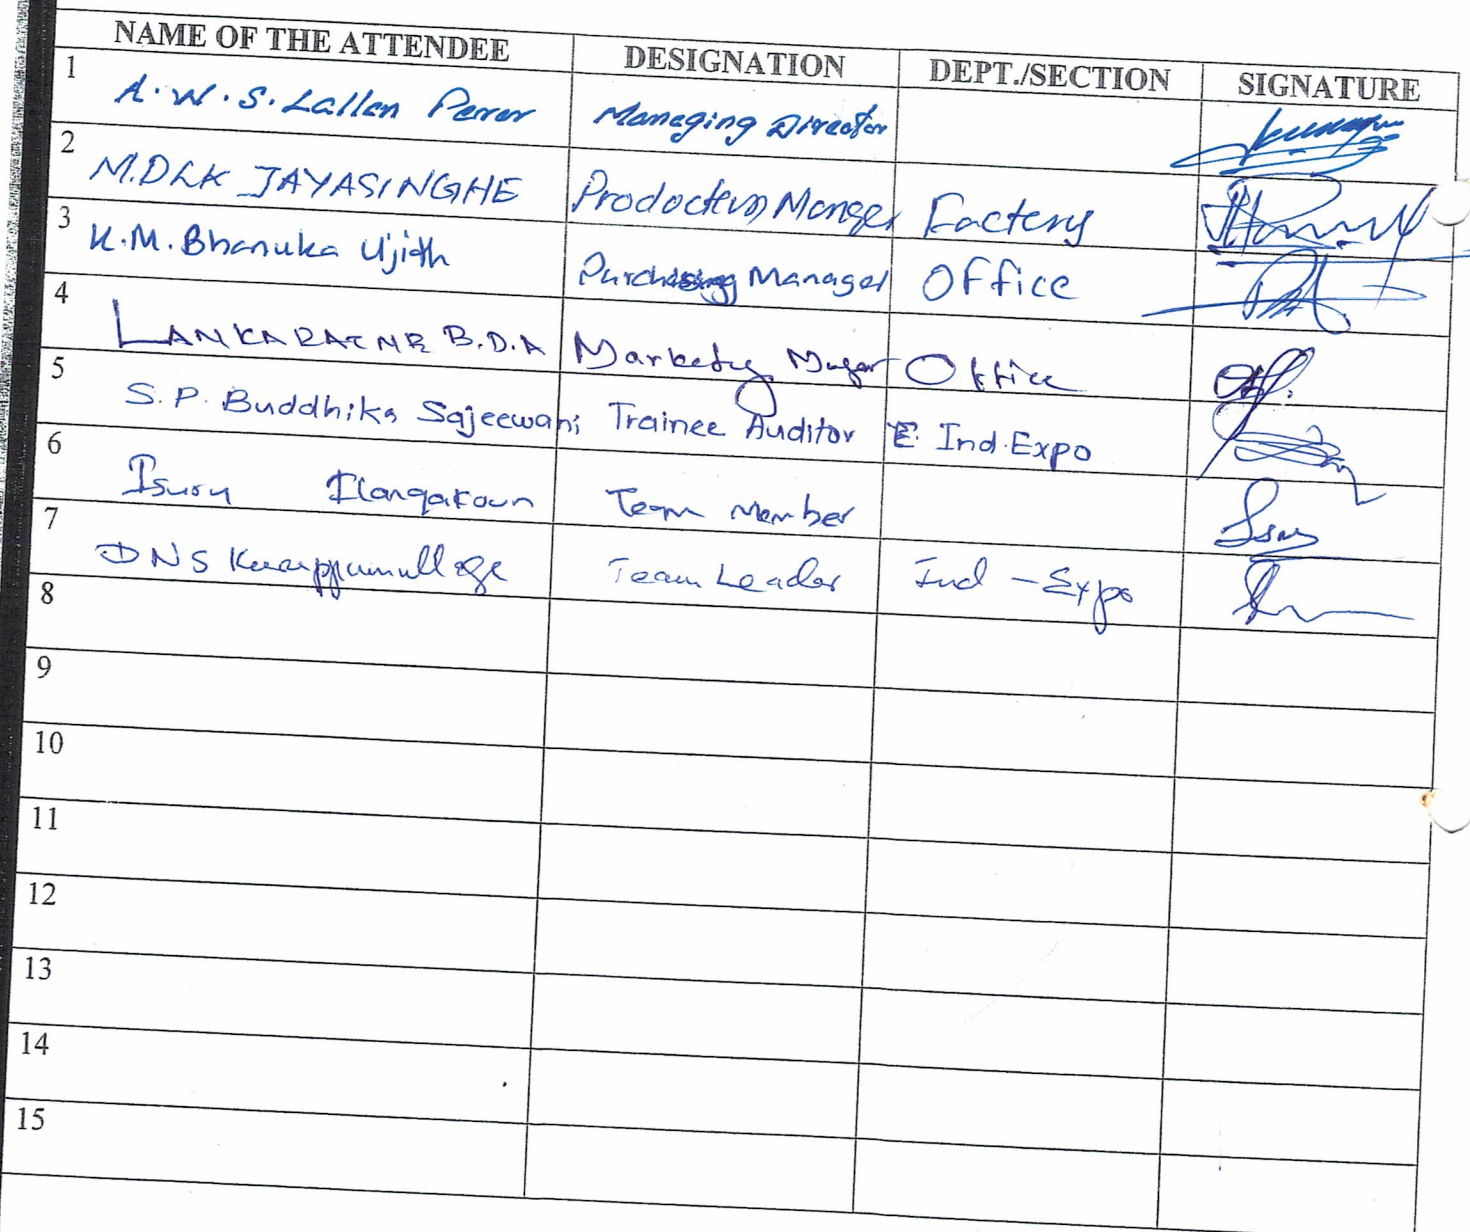 NAME OF THE ATTENDEE DESIGNATION DEPT./SECTION SIGNATURE
1 A.W.S. Lallen Perer Managing Director
2 M.DLK JAYASINGHE Prodoction Manger Factory
3 K.M. Bhanuka Ujith Purchasing Manager Office
4 LANKARATNE B.D.A Office
5 S.P. Buddhika Sajeewani Trainee Auditor E. Ind.Expo
6 Isuru Ilangakoun Team Member
7 DNS Team Leader Ind - Expo
8
9
10
11
12
13
14
15